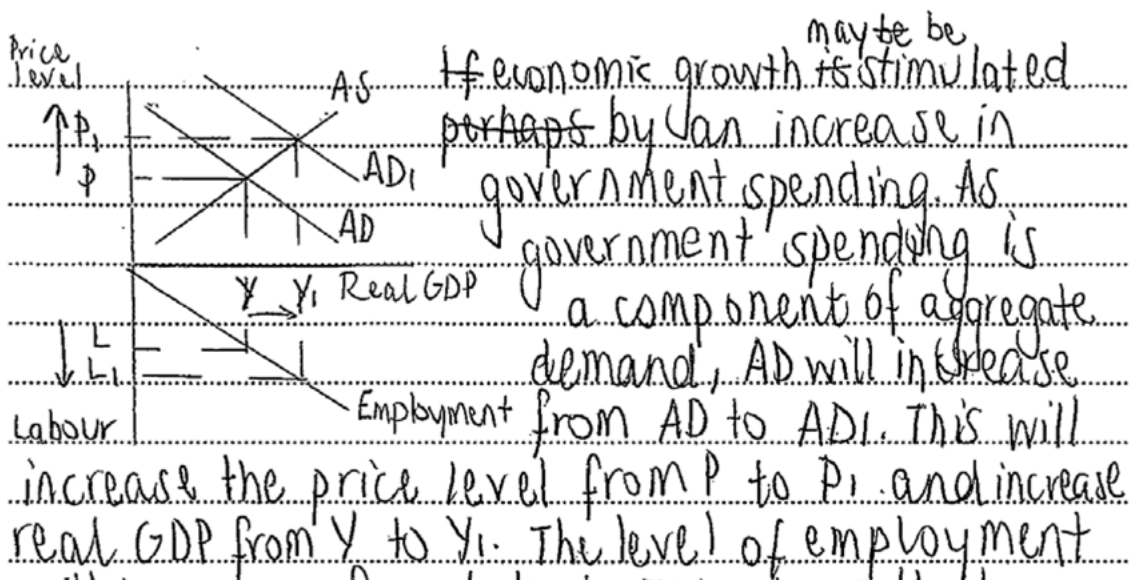 Price
level
P₁
P
AS
AD₁
AD
Y Y₁ Real GDP
L
L₁
Labour
Employment
may be be
If economic growth is stimulated
perhaps by an increase in
government spending. As
government spending is
a component of aggregate
demand, AD will increase
from AD to AD1. This will
increase the price level from P to P₁ and increase
real GDP from Y to Y₁. The level of employment